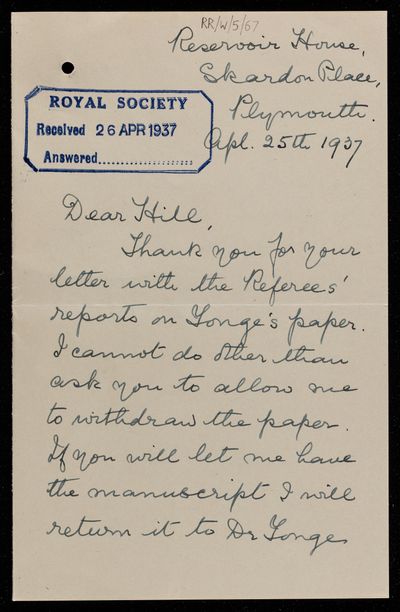 RR/W/5/67
Reservoir House,
Skardon Place,
Plymouth.
Apl. 25th 1937
ROYAL SOCIETY
Received 26 APR 1937
Answered....................
Dear Hill,
Thank you for your
letter with the Referees'
reports on Yonge's paper.
I cannot do other than
ask you to allow me
to withdraw the paper.
If you will let me have
the manuscript I will
return it to Dr Yonge